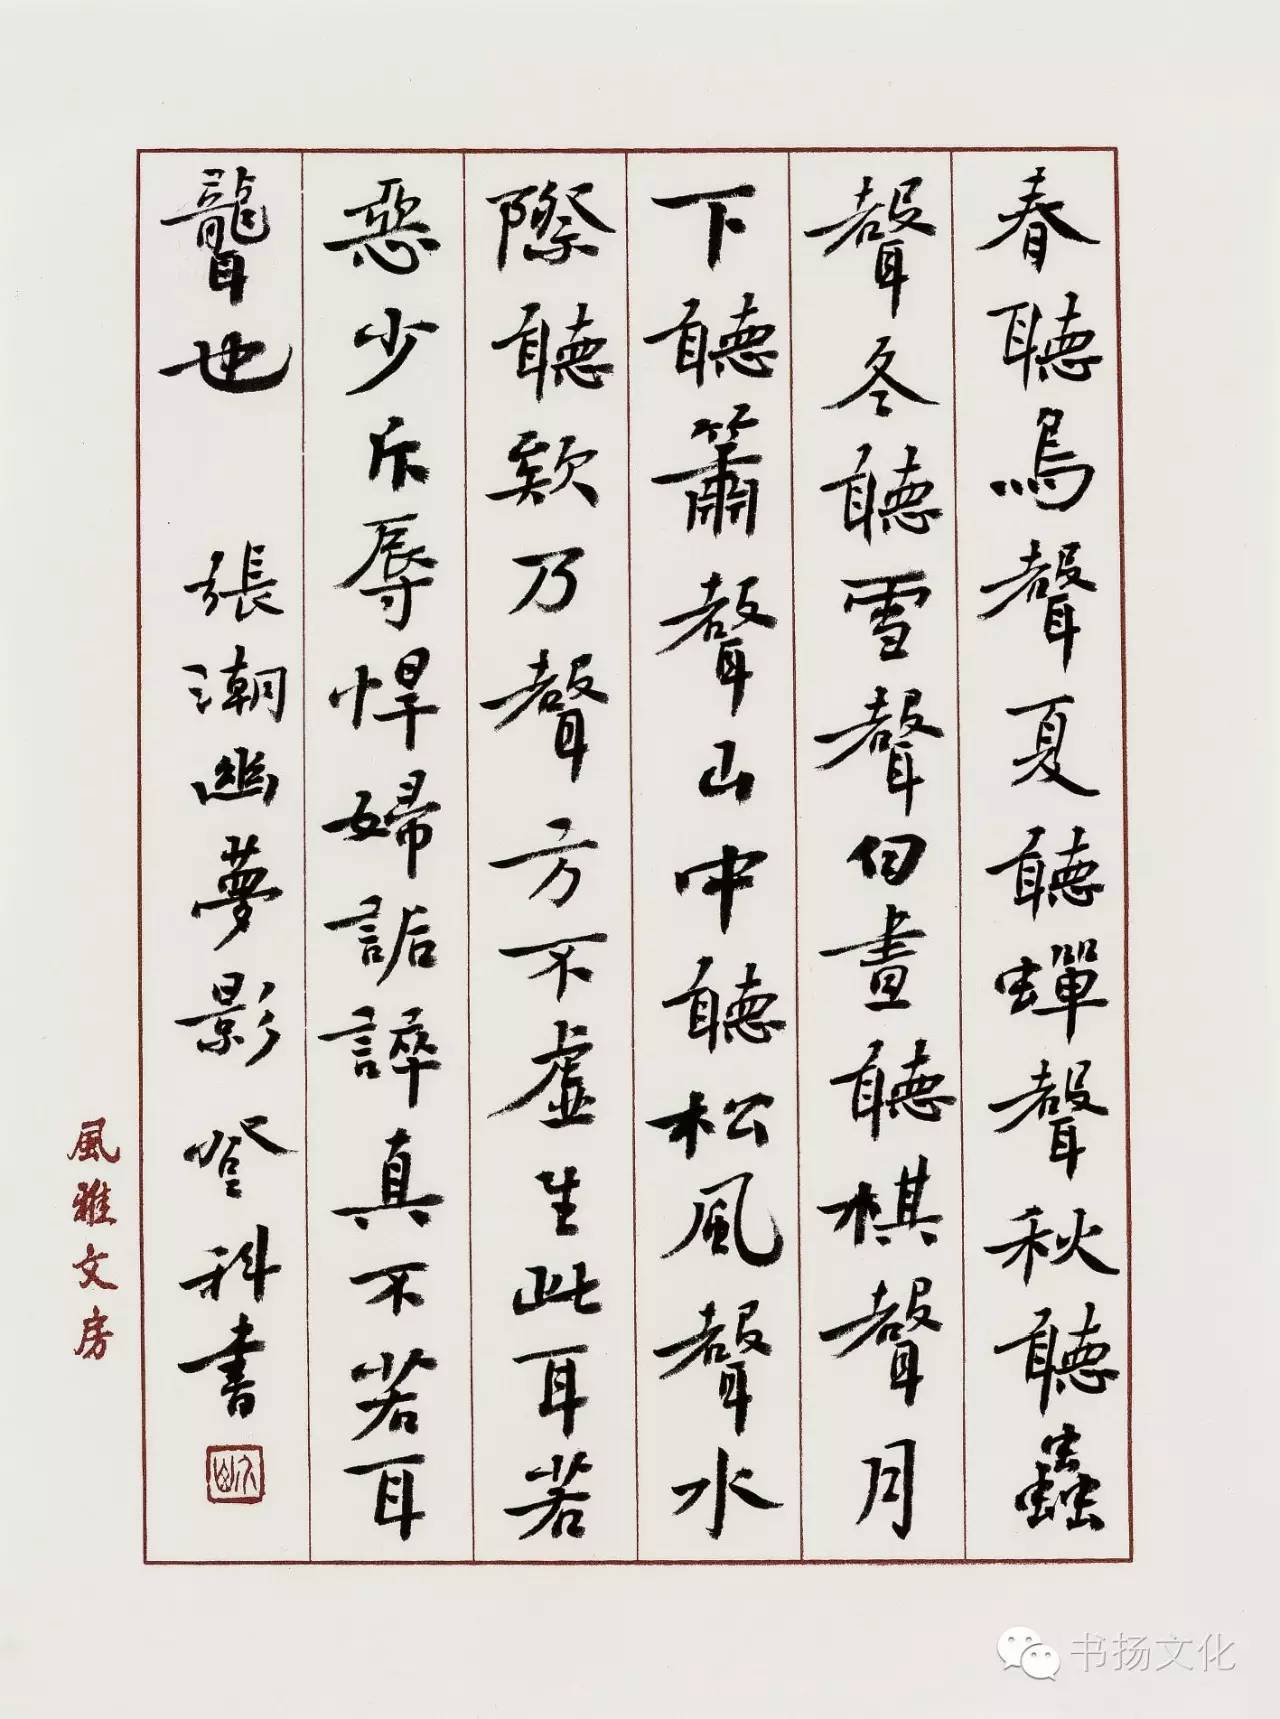 春聽鳥聲夏聽蟬聲秋聽蟲
聲冬聽雪聲白晝聽棋聲月
下聽簫聲山中聽松風聲水
際聽欸乃聲方不虛生此耳若
惡少斥辱悍婦詬誶真不若耳
聾也 張潮幽夢影 登科書
風雅文房
书扬文化